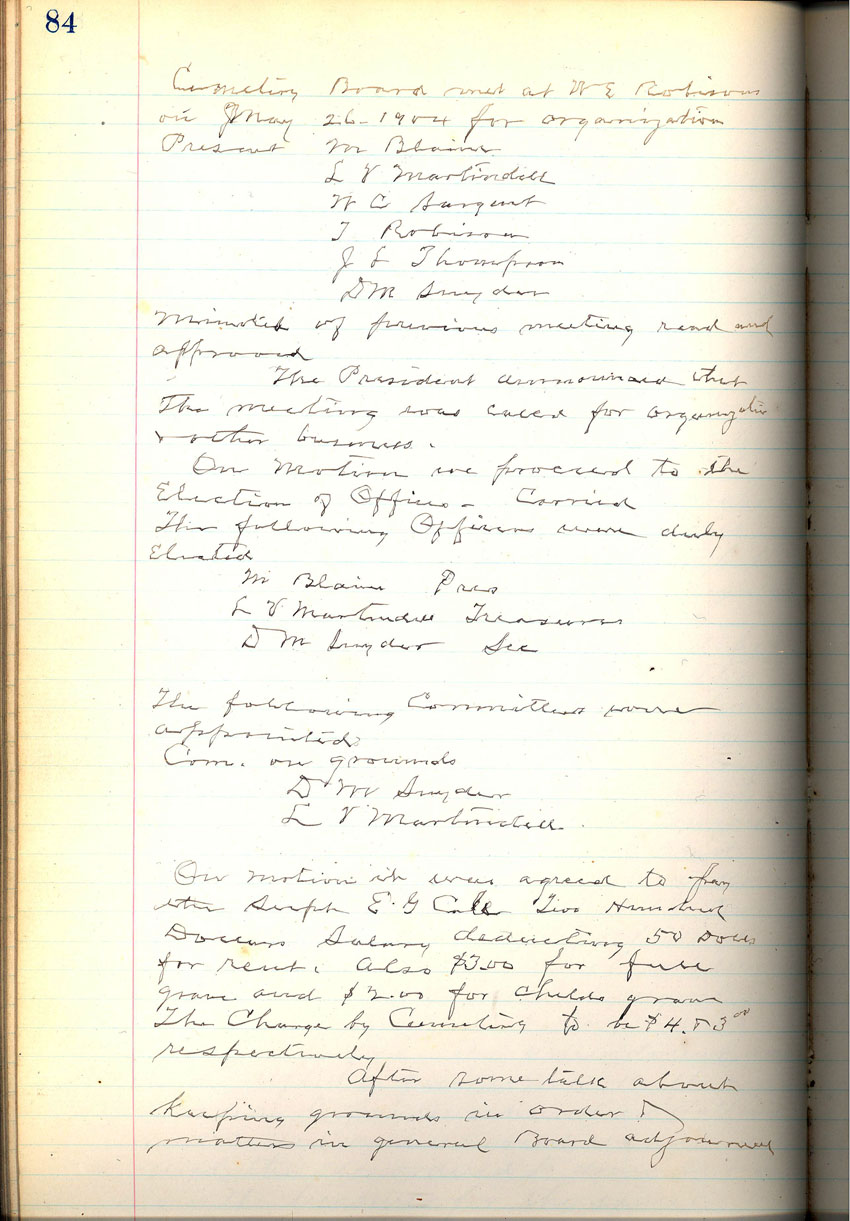 84
Cemetery Board met at W E Robisons
on May 26-1904 for organization
Present M Blaine
L V Martindill
W C Sargent
T Robison
J L Thompson
D M Snyder
Minutes of previous meeting read and
approved
The President announced that
The meeting was called for organization
& other business.
On Motion we proceed to the
Election of Officers - Carried
The following Officers were duly
Elected
M Blaine Pres
L V Martindill Treasurer
D M Snyder Sec
The following Committees were
appointed
Com. on grounds
D M Snyder
L V Martindill
On motion it was agreed to pay
the Supt E. G Cole Two Hundred
Dollars Salary deducting 50 Dolls
for rent. Also $3.00 for full
grave and $2.00 for childs grave
The Charge by Cemetery to be $4. & 3 00
respectively
After some talk about
keeping grounds in order &
matters in general Board adjourned